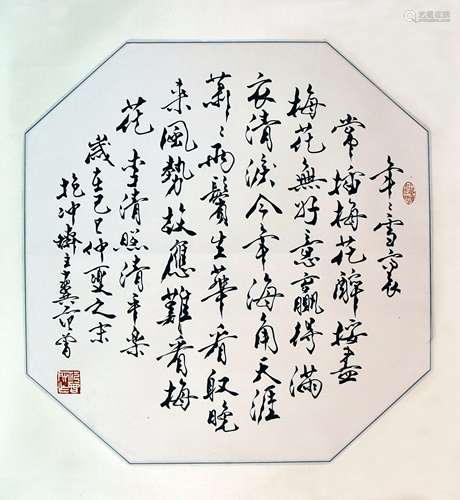 年〻雪裏
常插梅花醉挼盡
梅花無好意贏得滿
衣清淚今年海角天涯
蕭〻兩鬢生華看取晚
來風勢故應難看梅
花 李清照清平樂
歲在己巳仲夏之末
抱冲齋主十翼范曾